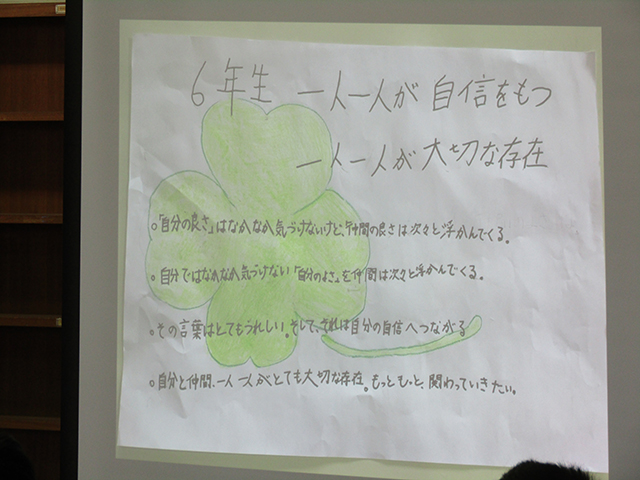 6年生 一人一人が自信をもつ
一人一人が大切な存在
。「自分の良さ」はなかなか気づけないけど、仲間の良さは次々と浮かんでくる。
。自分ではなかなか気づけない「自分のよさ」を仲間は次々と浮かんでくる。
。その言葉はとてもうれしい。そして、それは自分の自信へつながる
。自分と仲間、一人一人がとても大切な存在。もっともっと、関わっていきたい。